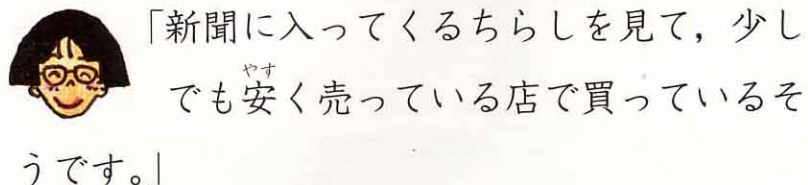 「新聞に入ってくるちらしを見て，少し
でも安く売っている店で買っているそ
うです。」